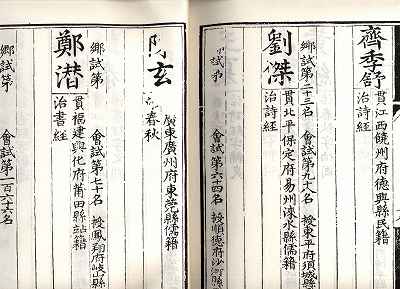 齊季舒
貫江西饒州府德興縣民籍
治詩經
鄉試第二十三名 會試第九十名 授東平府須城縣
劉傑
貫北平保定府易州淶水縣儒籍
治詩經
試第 會試第六十四名 授順德府沙河縣
玄
廣東廣州府東莞縣儒籍
春秋
鄉試第 會試第七十名 授鳳翔府岐山縣
鄭潜
貫福建興化府莆田縣站籍
治書經
鄉試第 會試第一百六十六名